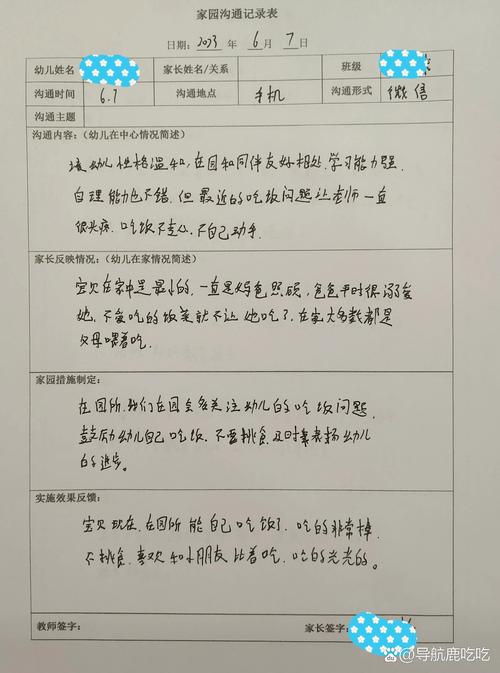 家园沟通记录表
日期: 2023 年 6 月 7 日
幼儿姓名 家长姓名/关系 班级
沟通时间 6.7 沟通地点 手机 沟通形式 微信
沟通主题
沟通内容:(幼儿在中心情况简述)
该幼儿性格温和,在园和同伴友好相处,学习能力强.
自理能力也不错,但最近的吃饭问题让老师一直
很头疼,吃饭不专心,不自己动手.
家长反映情况:(幼儿在家情况简述)
宝贝在家中是最小的,一直是妈爸照顾,爸爸平时很溺爱
她,不爱吃的饭菜就不让她吃了,在家大多数都是
父母喂着吃.
家园措施制定:
在园所,我们在园会多关注幼儿的吃饭问题
鼓励幼儿自己吃饭,不要挑食,及时表扬幼儿
的进步。
实施效果反馈:
宝贝现在,在园所能自己吃饭了,吃的非常棒
不挑食,喜欢和小朋友比着吃,吃的光光的。
教师签字: 家长签字:
@导航鹿吃吃